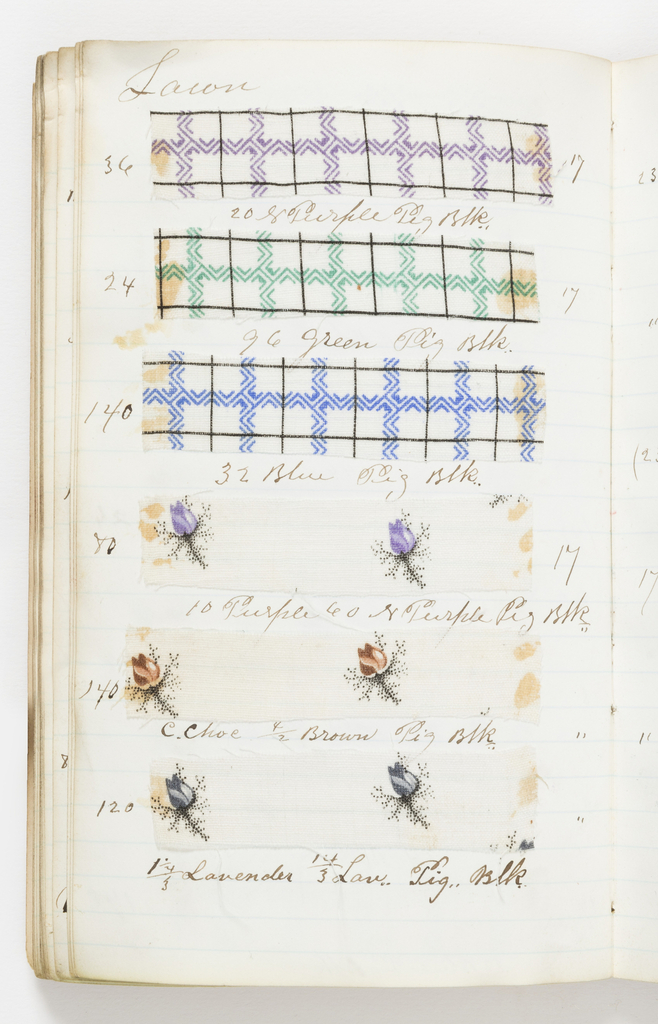 Lawn
36 17
20 N Purple Pig Blk.
24 17
96 Green Pig Blk.
140
32 Blue Pig Blk.
80 17
10 Purple 60 N Purple Pig Blk
140
C. Choc 4/2 Brown Pig Blk "
120 "
Lavender Lav.. Pig.. Blk
23
"
(2
17
"